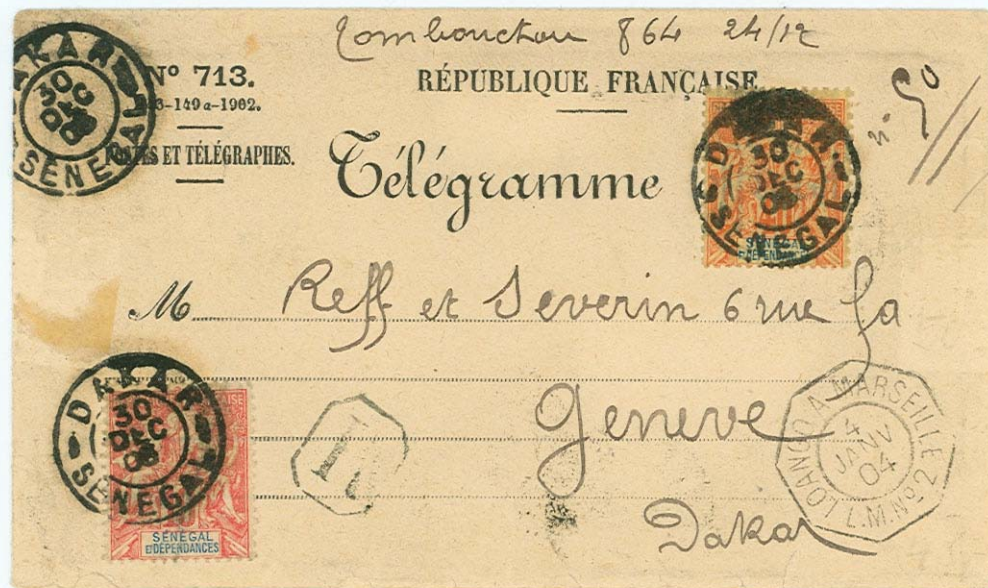 Tombouctou 864 24/12
DAKAR
30
DEC
03
SENEGAL
N° 713.
149a-1902.
POSTES ET TÉLÉGRAPHES.
RÉPUBLIQUE FRANÇAISE
Télégramme
DAKAR
30
DEC
03
SENEGAL
SÉNÉGAL
ET DÉPENDANCES
M Reff et Severin 6 rue la
Geneve
Dakar
DAKAR
30
DEC
03
SENEGAL
10
SÉNÉGAL
ET DÉPENDANCES
LOANGO A MARSEILLE
4
JANV
04
L.M. No 2